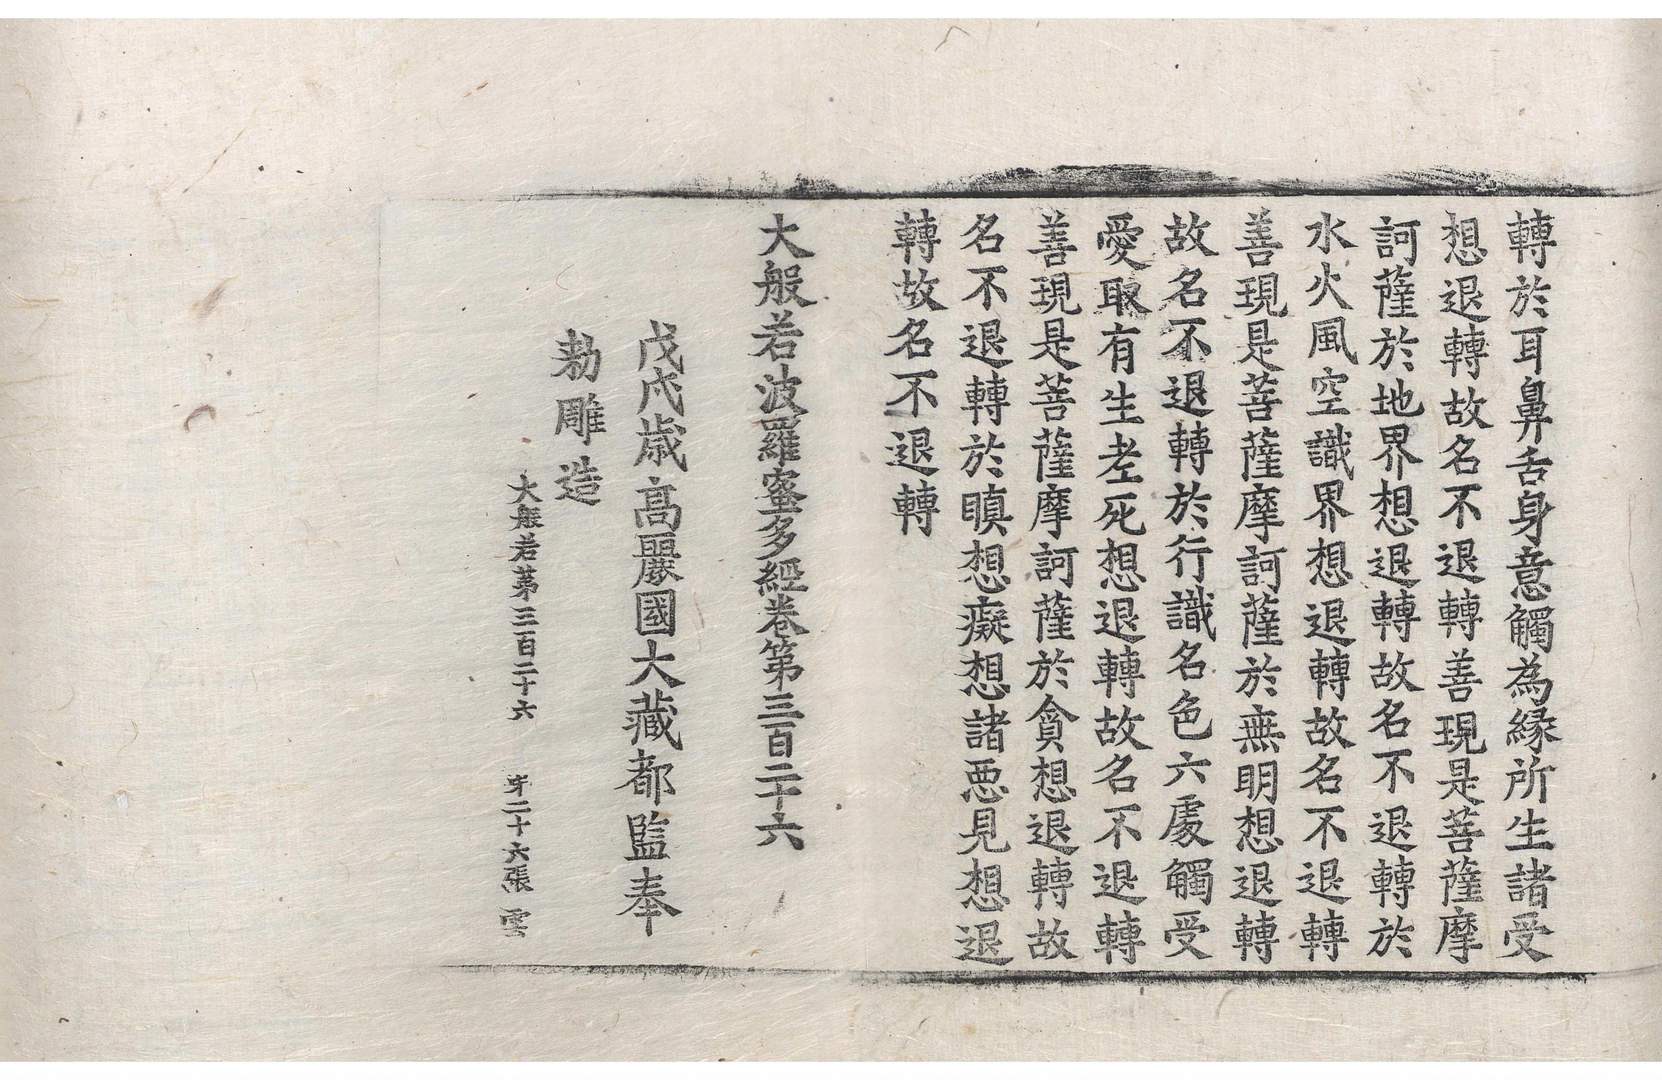 轉於耳鼻舌身意觸為緣所生諸受
想退轉故名不退轉善現是菩薩摩
訶薩於地界想退轉故名不退轉於
水火風空識界想退轉故名不退轉
善現是菩薩摩訶薩於無明想退轉
故名不退轉於行識名色六處觸受
愛取有生老死想退轉故名不退轉
善現是菩薩摩訶薩於貪想退轉故
名不退轉於瞋想癡想諸惡見想退
轉故名不退轉
大般若波羅蜜多經卷第三百二十六
戊戌歲高麗國大藏都監奉
勅雕造
大般若第三百二十六 第二十六張 雲